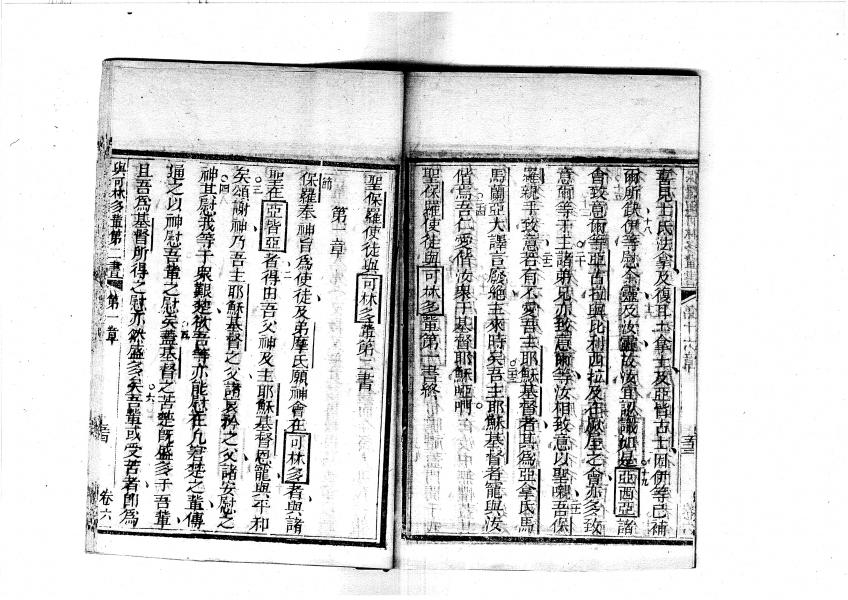 喜見士氏法拿及復耳土拿士及亞皆古士因併等已補
爾所缺伊等慰余靈及汝靈故汝宜認識如是亞西亞諸
會致意爾等亞古拉與比利西拉及在厥屋之會亦多致
意爾等于主諸弟兄亦致意爾等汝相致意以聖嘴吾保
羅親手致意若有不愛吾主耶穌基督者其為亞拿氏馬
馬蘭亞大譯言廢絕主來時矣吾主耶穌基督者寵與汝
偕焉吾仁愛偕汝眾于基督耶穌啞㗎
聖保羅使徒與可林多輩第一書終
聖保羅使徒與可林多輩第二書
第一章
節
保羅奉神旨為使徒及弟摩氏願神會在可林多者與諸
聖在亞皆亞者得由吾父神及主耶穌基督恩寵與平和
矣頌謝神乃吾主耶穌基督之父諸哀矜之父諸安慰之
神其慰我等于眾艱楚致吾等亦能慰在凡窘楚之輩傳
逼之以神慰吾輩之慰矣蓋基督之苦楚既盛多于吾輩
且吾為基督所得之慰亦然盛多矣吾輩或受苦者即為
與可林多輩第二書
第一章
卷六